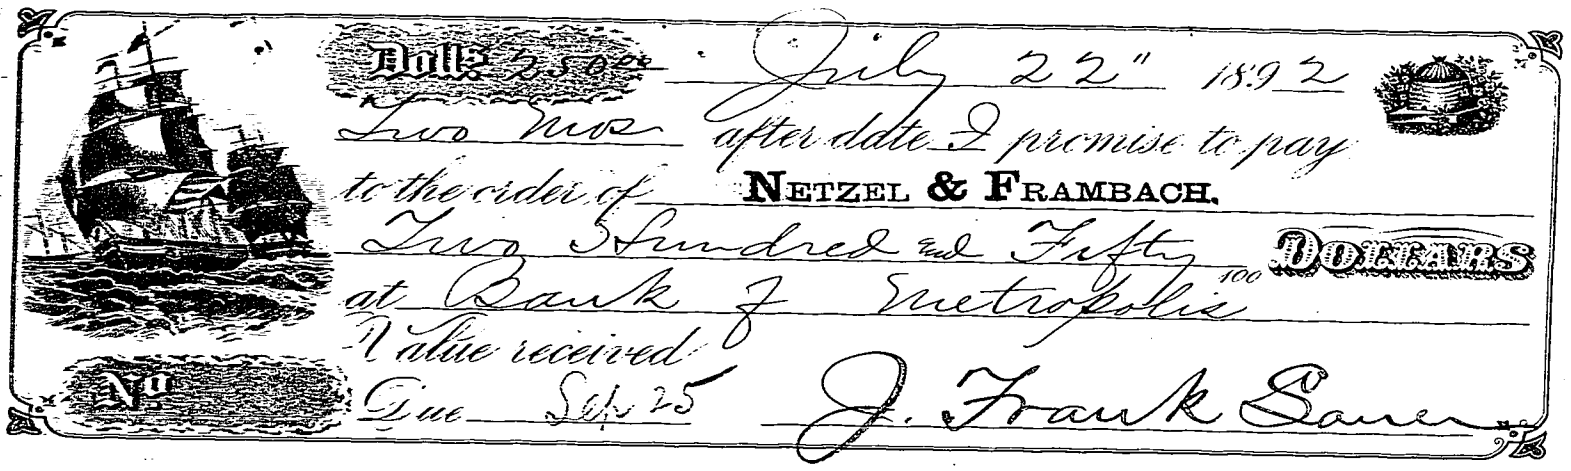 Dolls 250 00 July 22" 1892
Two Mos after date I promise to pay
to the order of NETZEL & FRAMBACH.
Two Hundred and Fifty 100 DOLLARS
at Bank of Metropolis
Value received
No Due Sep 25 J. Frank Sauer